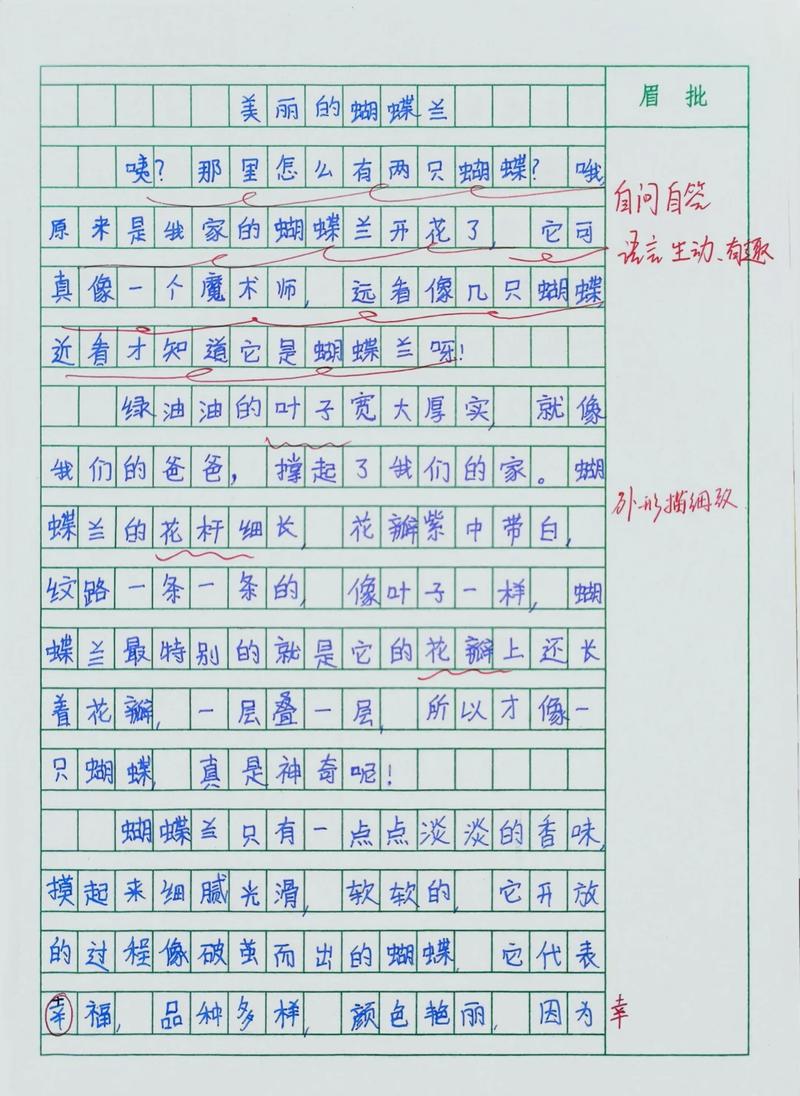 美丽的蝴蝶兰
眉批
咦？那里怎么有两只蝴蝶？哦，
原来是我家的蝴蝶兰开花了，它可
真像一个魔术师，远看像几只蝴蝶，
近看才知道它是蝴蝶兰呀！
绿油油的叶子宽大厚实，就像
我们的爸爸，撑起了我们的家。蝴
蝶兰的花杆细长，花瓣紫中带白，
纹路一条一条的，像叶子一样，蝴
蝶兰最特别的就是它的花瓣上还长
着花瓣，一层叠一层，所以才像一
只蝴蝶，真是神奇呢！
蝴蝶兰只有一点点淡淡的香味，
摸起来细腻光滑，软软的，它开放
的过程像破茧而出的蝴蝶，它代表
幸福，品种多样，颜色艳丽，因为
自问自答
语言生动、有趣
外形描细致
幸